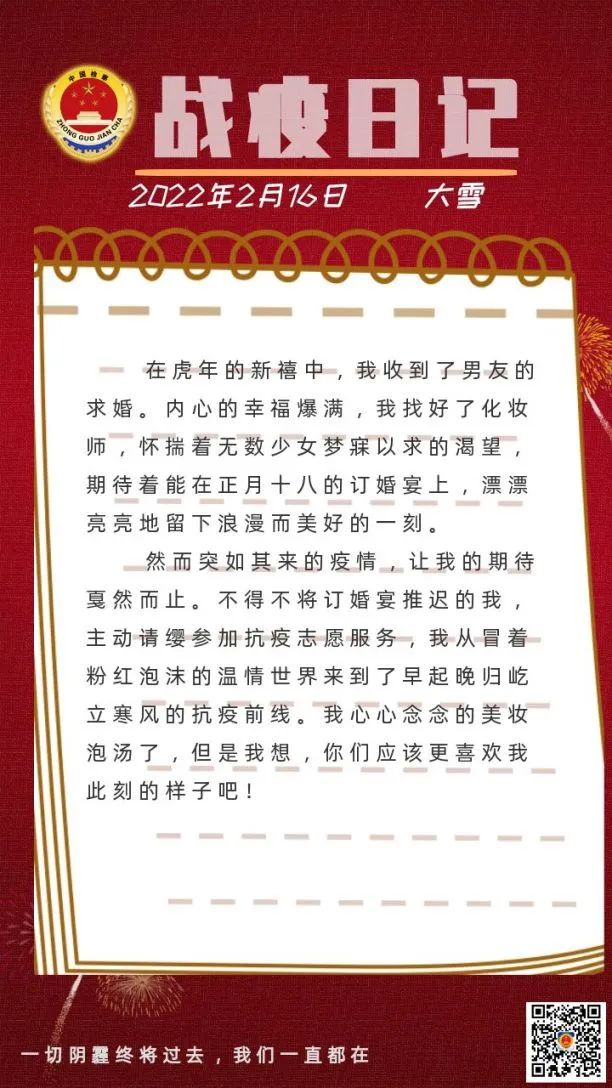 中国检察
ZHONG GUO JIAN CHA
战疫日记
2022年2月16日 大雪
在虎年的新禧中，我收到了男友的
求婚。内心的幸福爆满，我找好了化妆
师，怀揣着无数少女梦寐以求的渴望，
期待着能在正月十八的订婚宴上，漂漂
亮亮地留下浪漫而美好的一刻。
然而突如其来的疫情，让我的期待
戛然而止。不得不将订婚宴推迟的我，
主动请缨参加抗疫志愿服务，我从冒着
粉红泡沫的温情世界来到了早起晚归屹
立寒风的抗疫前线。我心心念念的美妆
泡汤了，但是我想，你们应该更喜欢我
此刻的样子吧！
一切阴霾终将过去，我们一直都在